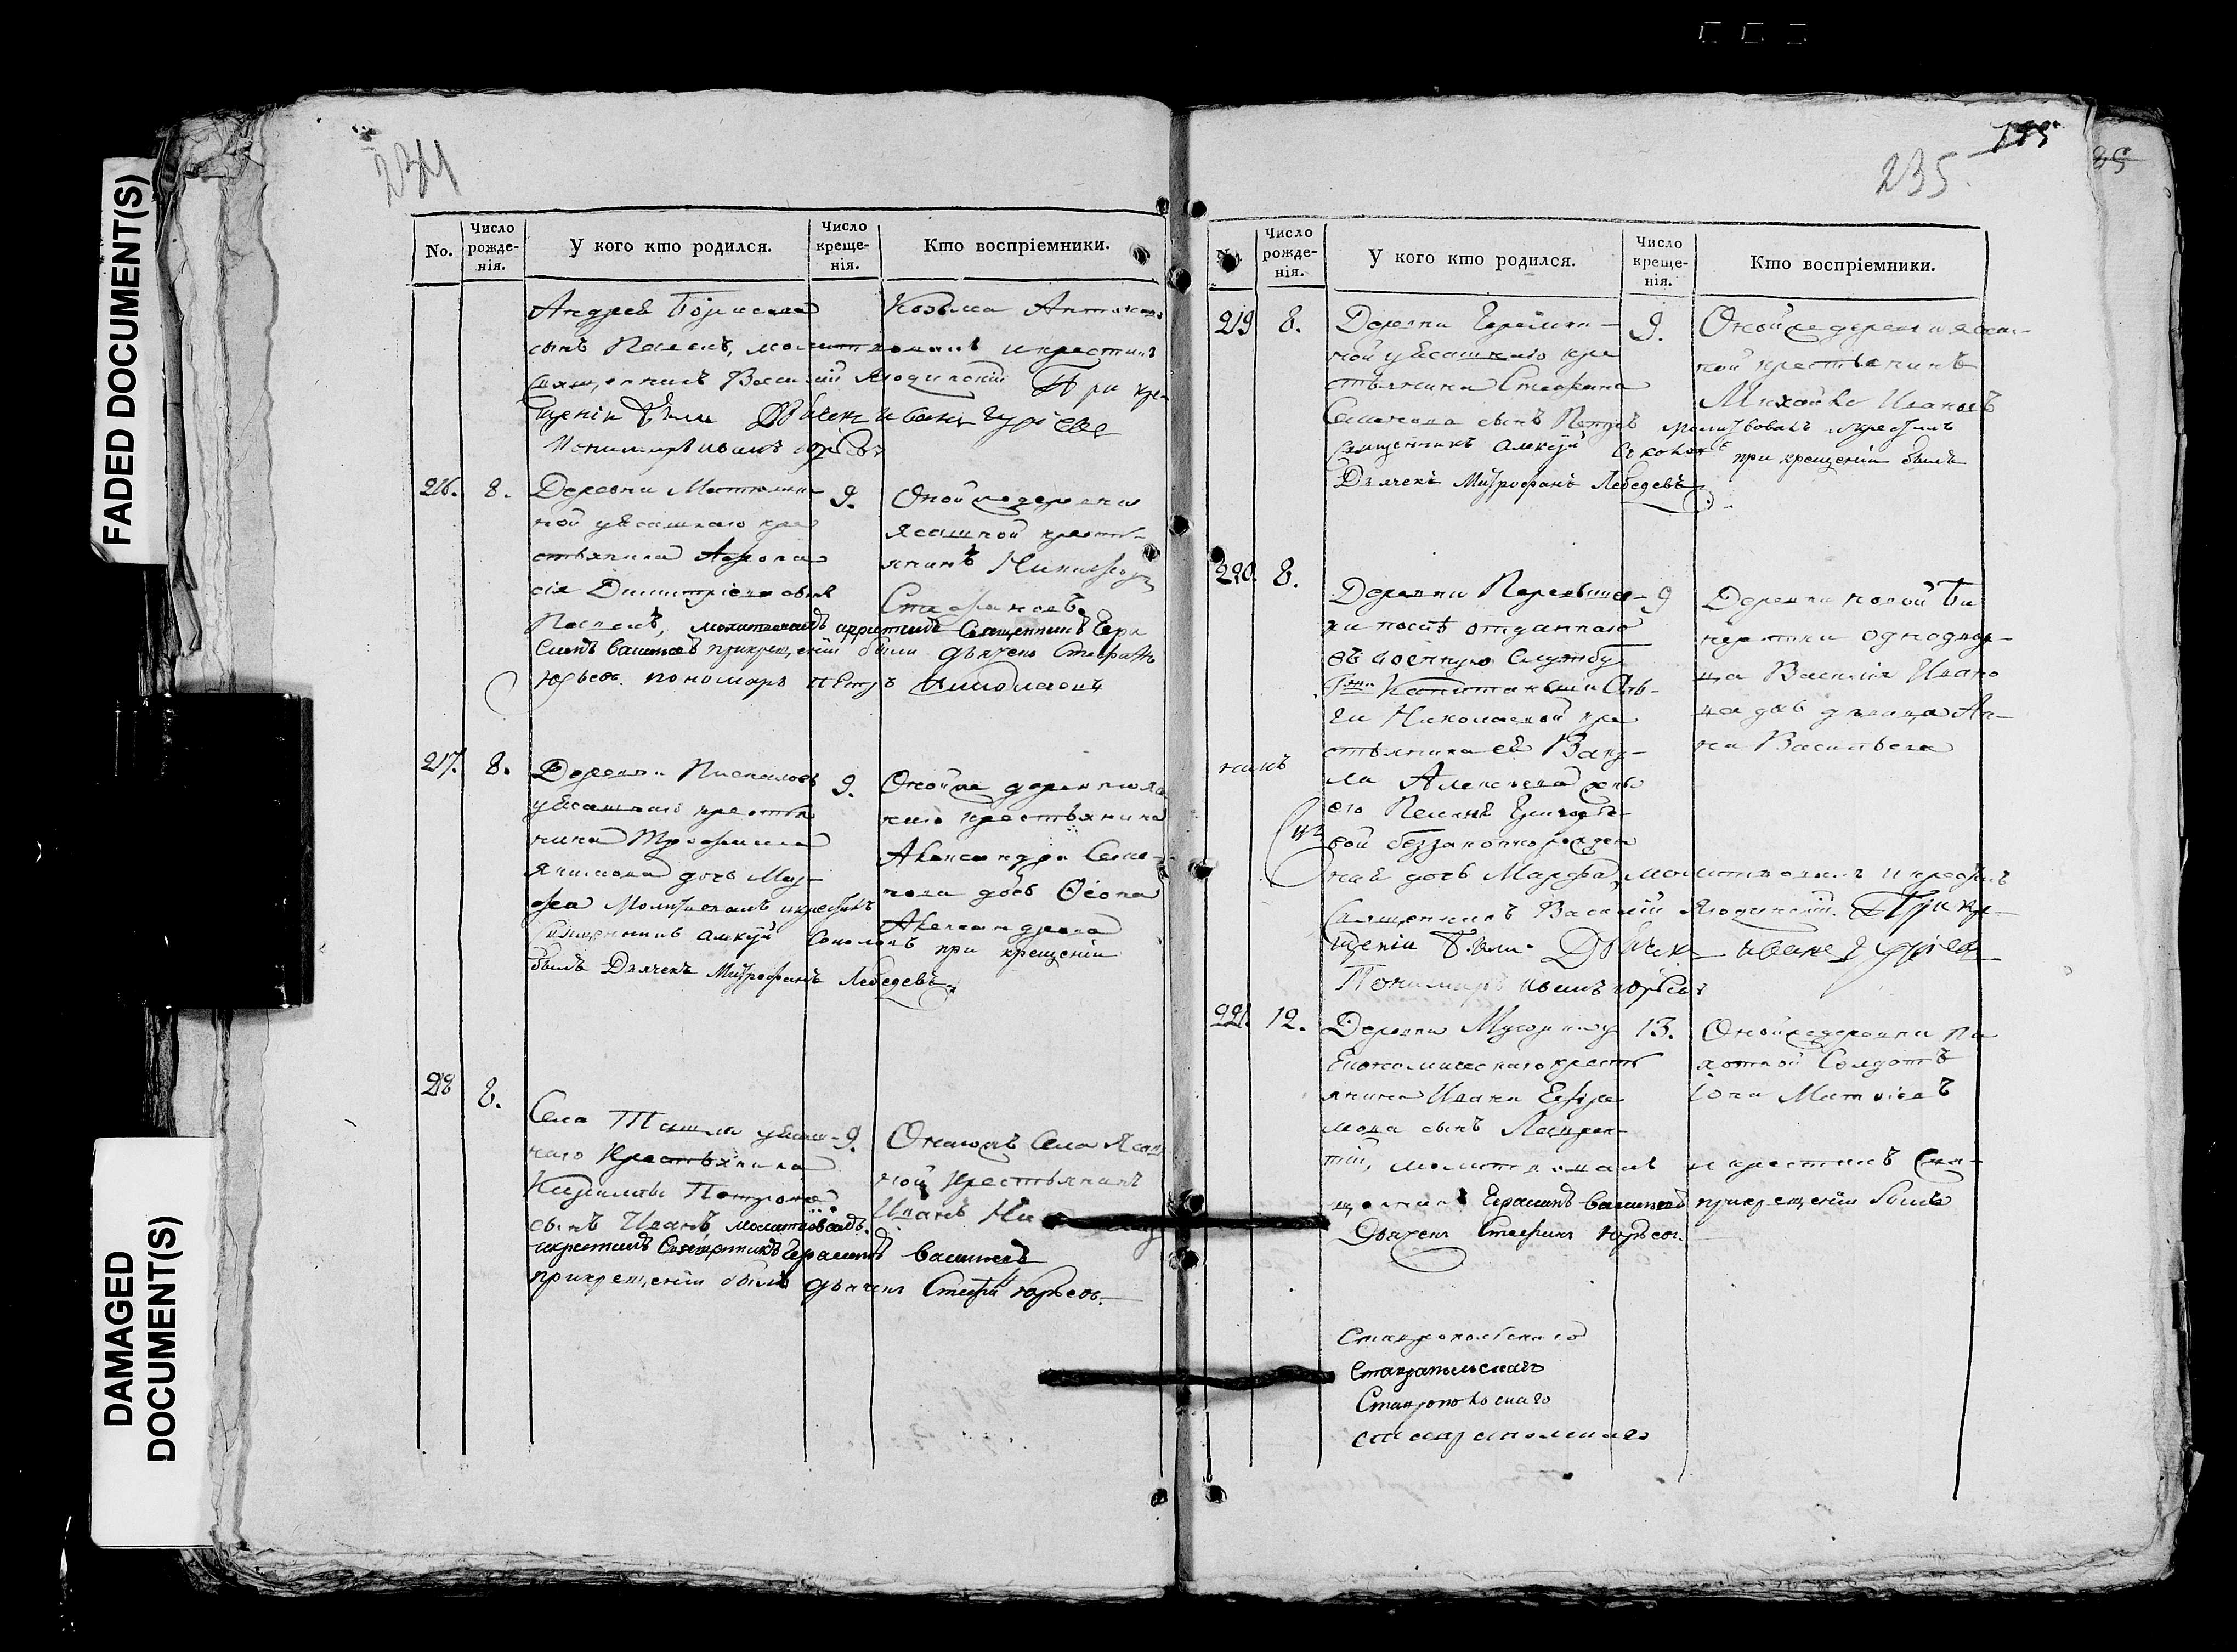 FADED DOCUMENT(S)
DAMAGED
DOCUMENT(S)
234
No.
Число рожденія.
У кого кто родился.
Число крещенія.
Кто воспріемники.
Андрея Борисова
сынъ Павелъ, молитвовалъ и крестилъ
священникъ Василій При кре-
щеніи были Дьячекъ Иванъ Гурьевъ
Пономарь Иванъ Юрьевъ
Козьма
216. 8.
Деревни
ной ясашнаго кре
стьянина Афона
сія Димитріева сынъ
Павелъ, молитвовалъ и крестилъ Священникъ Гера
симъ Васильевъ при крещеніи были дьячекъ Стефанъ
Юрьевъ пономарь Петръ
9.
Оной же деревни
ясашной кресть-
янинъ Никифоръ
Стефановъ
217. 8.
Деревни
ясашнаго кресть
янина Трофима
Якимова дочь Мар-
фа молитвовалъ и крестилъ
Священникъ Алексѣй Соколовъ при крещеніи
былъ Дьячекъ Митрофанъ Лебедевъ
9.
Оной же деревни яса
наго крестьянина
Александра Семе-
нова дочь
Александрова
218 8.
Села Ташлы ясаш-
наго Крестьянина
Кирилы Петрова
сынъ Иванъ молитвовалъ
и крестилъ Священникъ Герасимъ Васильевъ
при крещеніи былъ дьячекъ Стефанъ Юрьевъ
9.
Онаго жъ Села Ясаш
ной Крестьянинъ
Иванъ
235
No.
Число рожденія.
У кого кто родился.
Число крещенія.
Кто воспріемники.
219 8.
Деревни
ной ясашнаго кре
стьянина Стефана
Семенова сынъ Петръ молитвовалъ и крестилъ
Священникъ Алексѣй Соколовъ при крещеніи былъ
Дьячекъ Митрофанъ Лебедевъ
9.
Оной же деревни ясаш-
ной крестьянинъ
Михайло Ивановъ
220. 8.
Деревни
послѣ отданнаго
въ военную Службу
Гжи Капитанши Оль-
ги Николаевой кре
стьянина ея Ваку-
ла Алексѣева жены
его Пелагеи Григорье-
вой беззаконно рожден
ная дочь Марфа, молитвовалъ и крестилъ
Священникъ Василій При кре-
щеніи были Дьячекъ Иванъ Гурьевъ
Пономарь Иванъ Юрьевъ
9
Деревни новой Би
нарадки однодвор-
ца Василія Ивано
ва дѣвица Ан-
на Васильева
221. 12.
Деревни Мусорки
Економическаго кресть
янина Ивана Ефре
мова сынъ Лаврен-
тій, молитвовалъ и крестилъ Свя-
щенникъ Герасимъ Васильевъ при крещеніи былъ
Дьячекъ Стефанъ Юрьевъ
13.
Оной же деревни па
хотной Солдатъ
Іона Матвіевъ
Ставропольскаго
Ставропольскаго
Ставропольскаго
Ставропольскаго